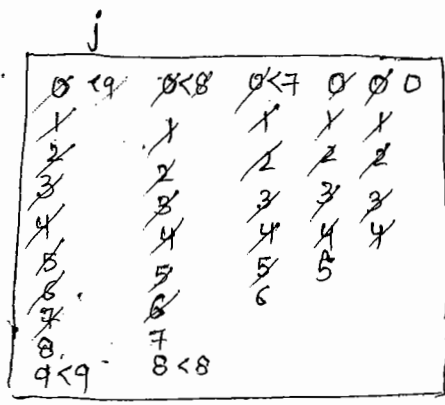 j
0 <9 0<8 0<7 0 0 0
1 1 1 1 1
2 2 2 2 2
3 3 3 3 3
4 4 4 4 4
5 5 5 5
6 6 6
7 7
8
9<9 8<8